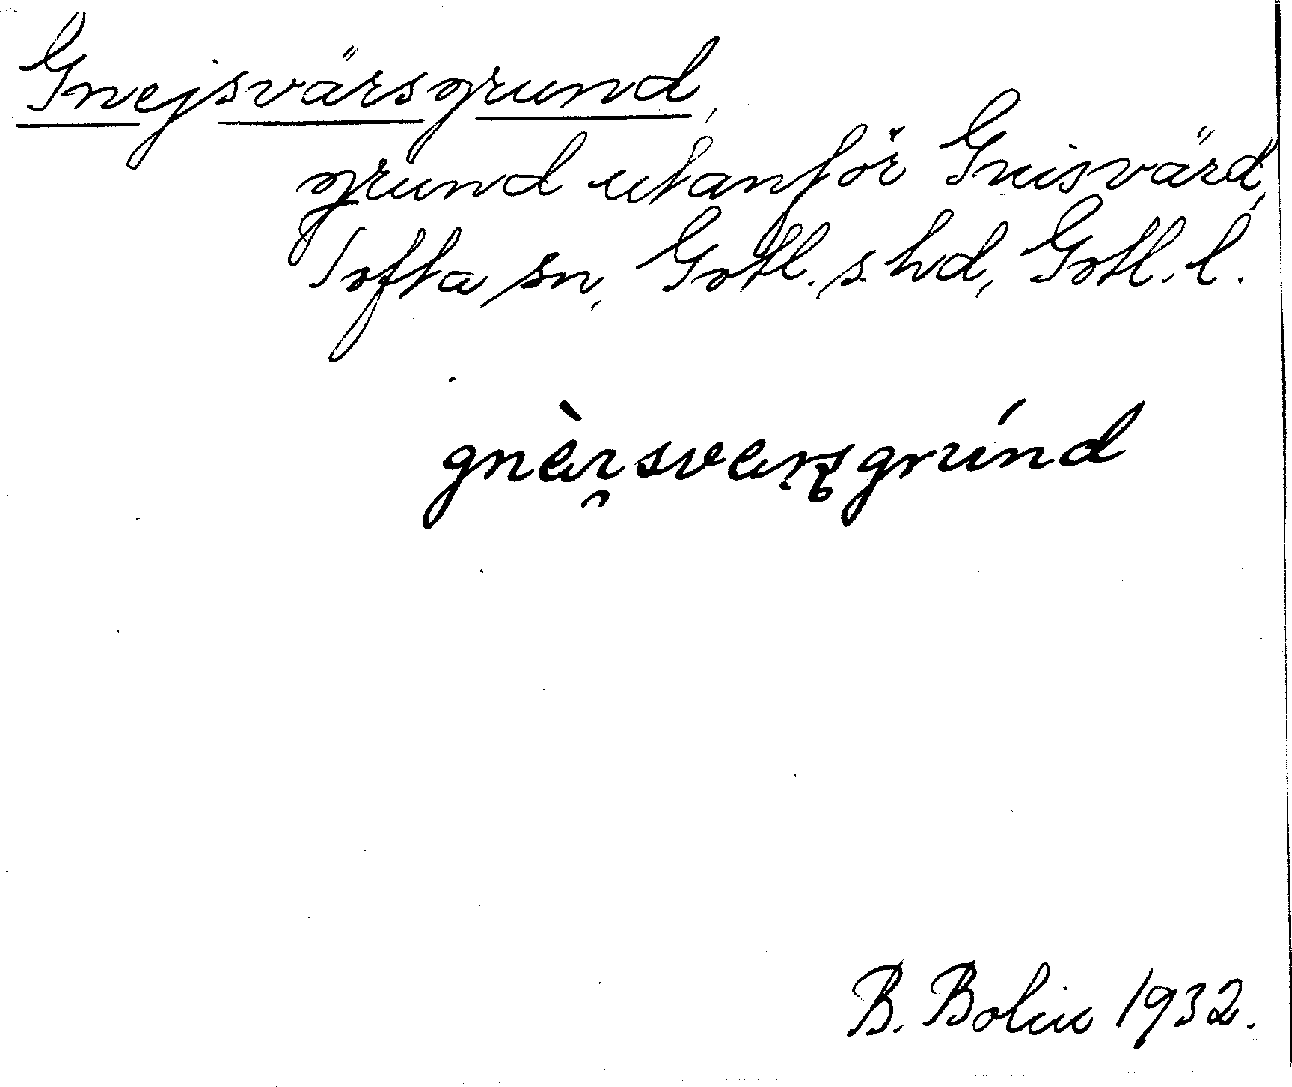 Gnejsvärsgrund,
grund utanför Gnisvärd,
Tofta sn, Gotl. s. hd, Gotl. l.
B. Bolin 1932.